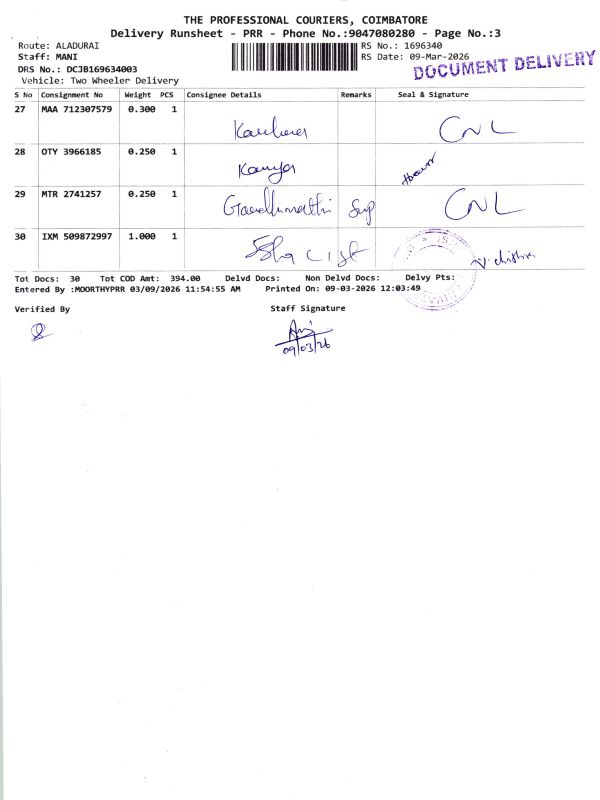 THE PROFESSIONAL COURIERS, COIMBATORE
Delivery Runsheet - PRR - Phone No.:9047080280 - Page No.:3
Route: ALADURAI RS No.: 1696340
Staff: MANI RS Date: 09-Mar-2026
DRS No.: DCJB169634003
DOCUMENT DELIVERY
Vehicle: Two Wheeler Delivery
S No Consignment No Weight PCS Consignee Details Remarks Seal & Signature
27 MAA 712307579 0.300 1
CNL
28 OTY 3966185 0.250 1
Kanya
29 MTR 2741257 0.250 1
Gandhimathi Sup CNL
30 IXM 509872997 1.000 1
Tot Docs: 30 Tot COD Amt: 394.00 Delvd Docs: Non Delvd Docs: Delvy Pts:
Entered By :MOORTHYPRR 03/09/2026 11:54:55 AM Printed On: 09-03-2026 12:03:49
Verified By Staff Signature
09/03/26